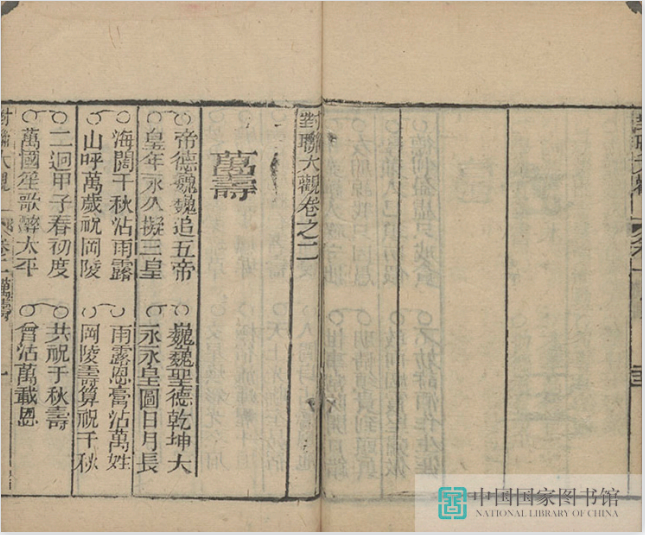 對聯大觀卷之二
萬壽
帝德巍巍追五帝　巍巍聖德乾坤大
皇年永久擬三皇　永永皇圖日月長
海闊千秋沾雨露　雨露恩膏沾萬姓
山呼萬歲祝岡陵　岡陵壽算祝千秋
二迴甲子春初度　共祝千秋壽
萬國笙歌醉太平　曾沾萬載恩
對聯大觀　卷二萬壽　一
中国国家图书馆
NATIONAL LIBRARY OF CHINA